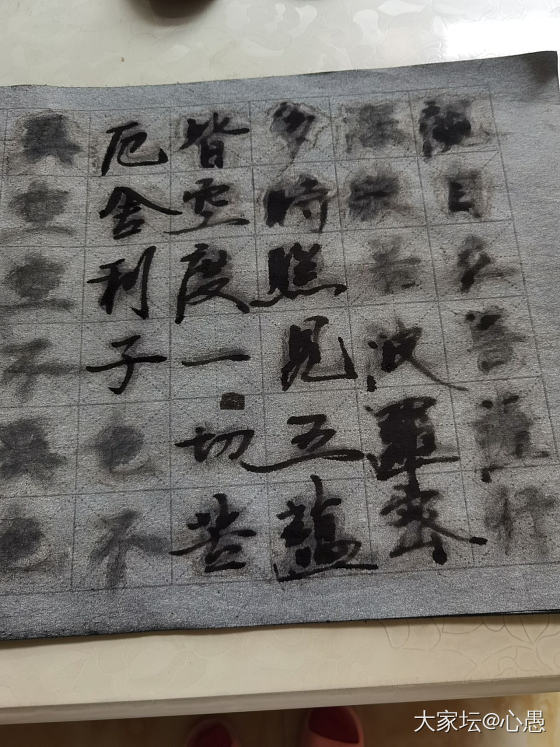 觀自在菩薩行
深般若波羅蜜
多時照見五蘊
皆空度一切苦
厄舍利子色不
異空空不異色
大家坛@心愚